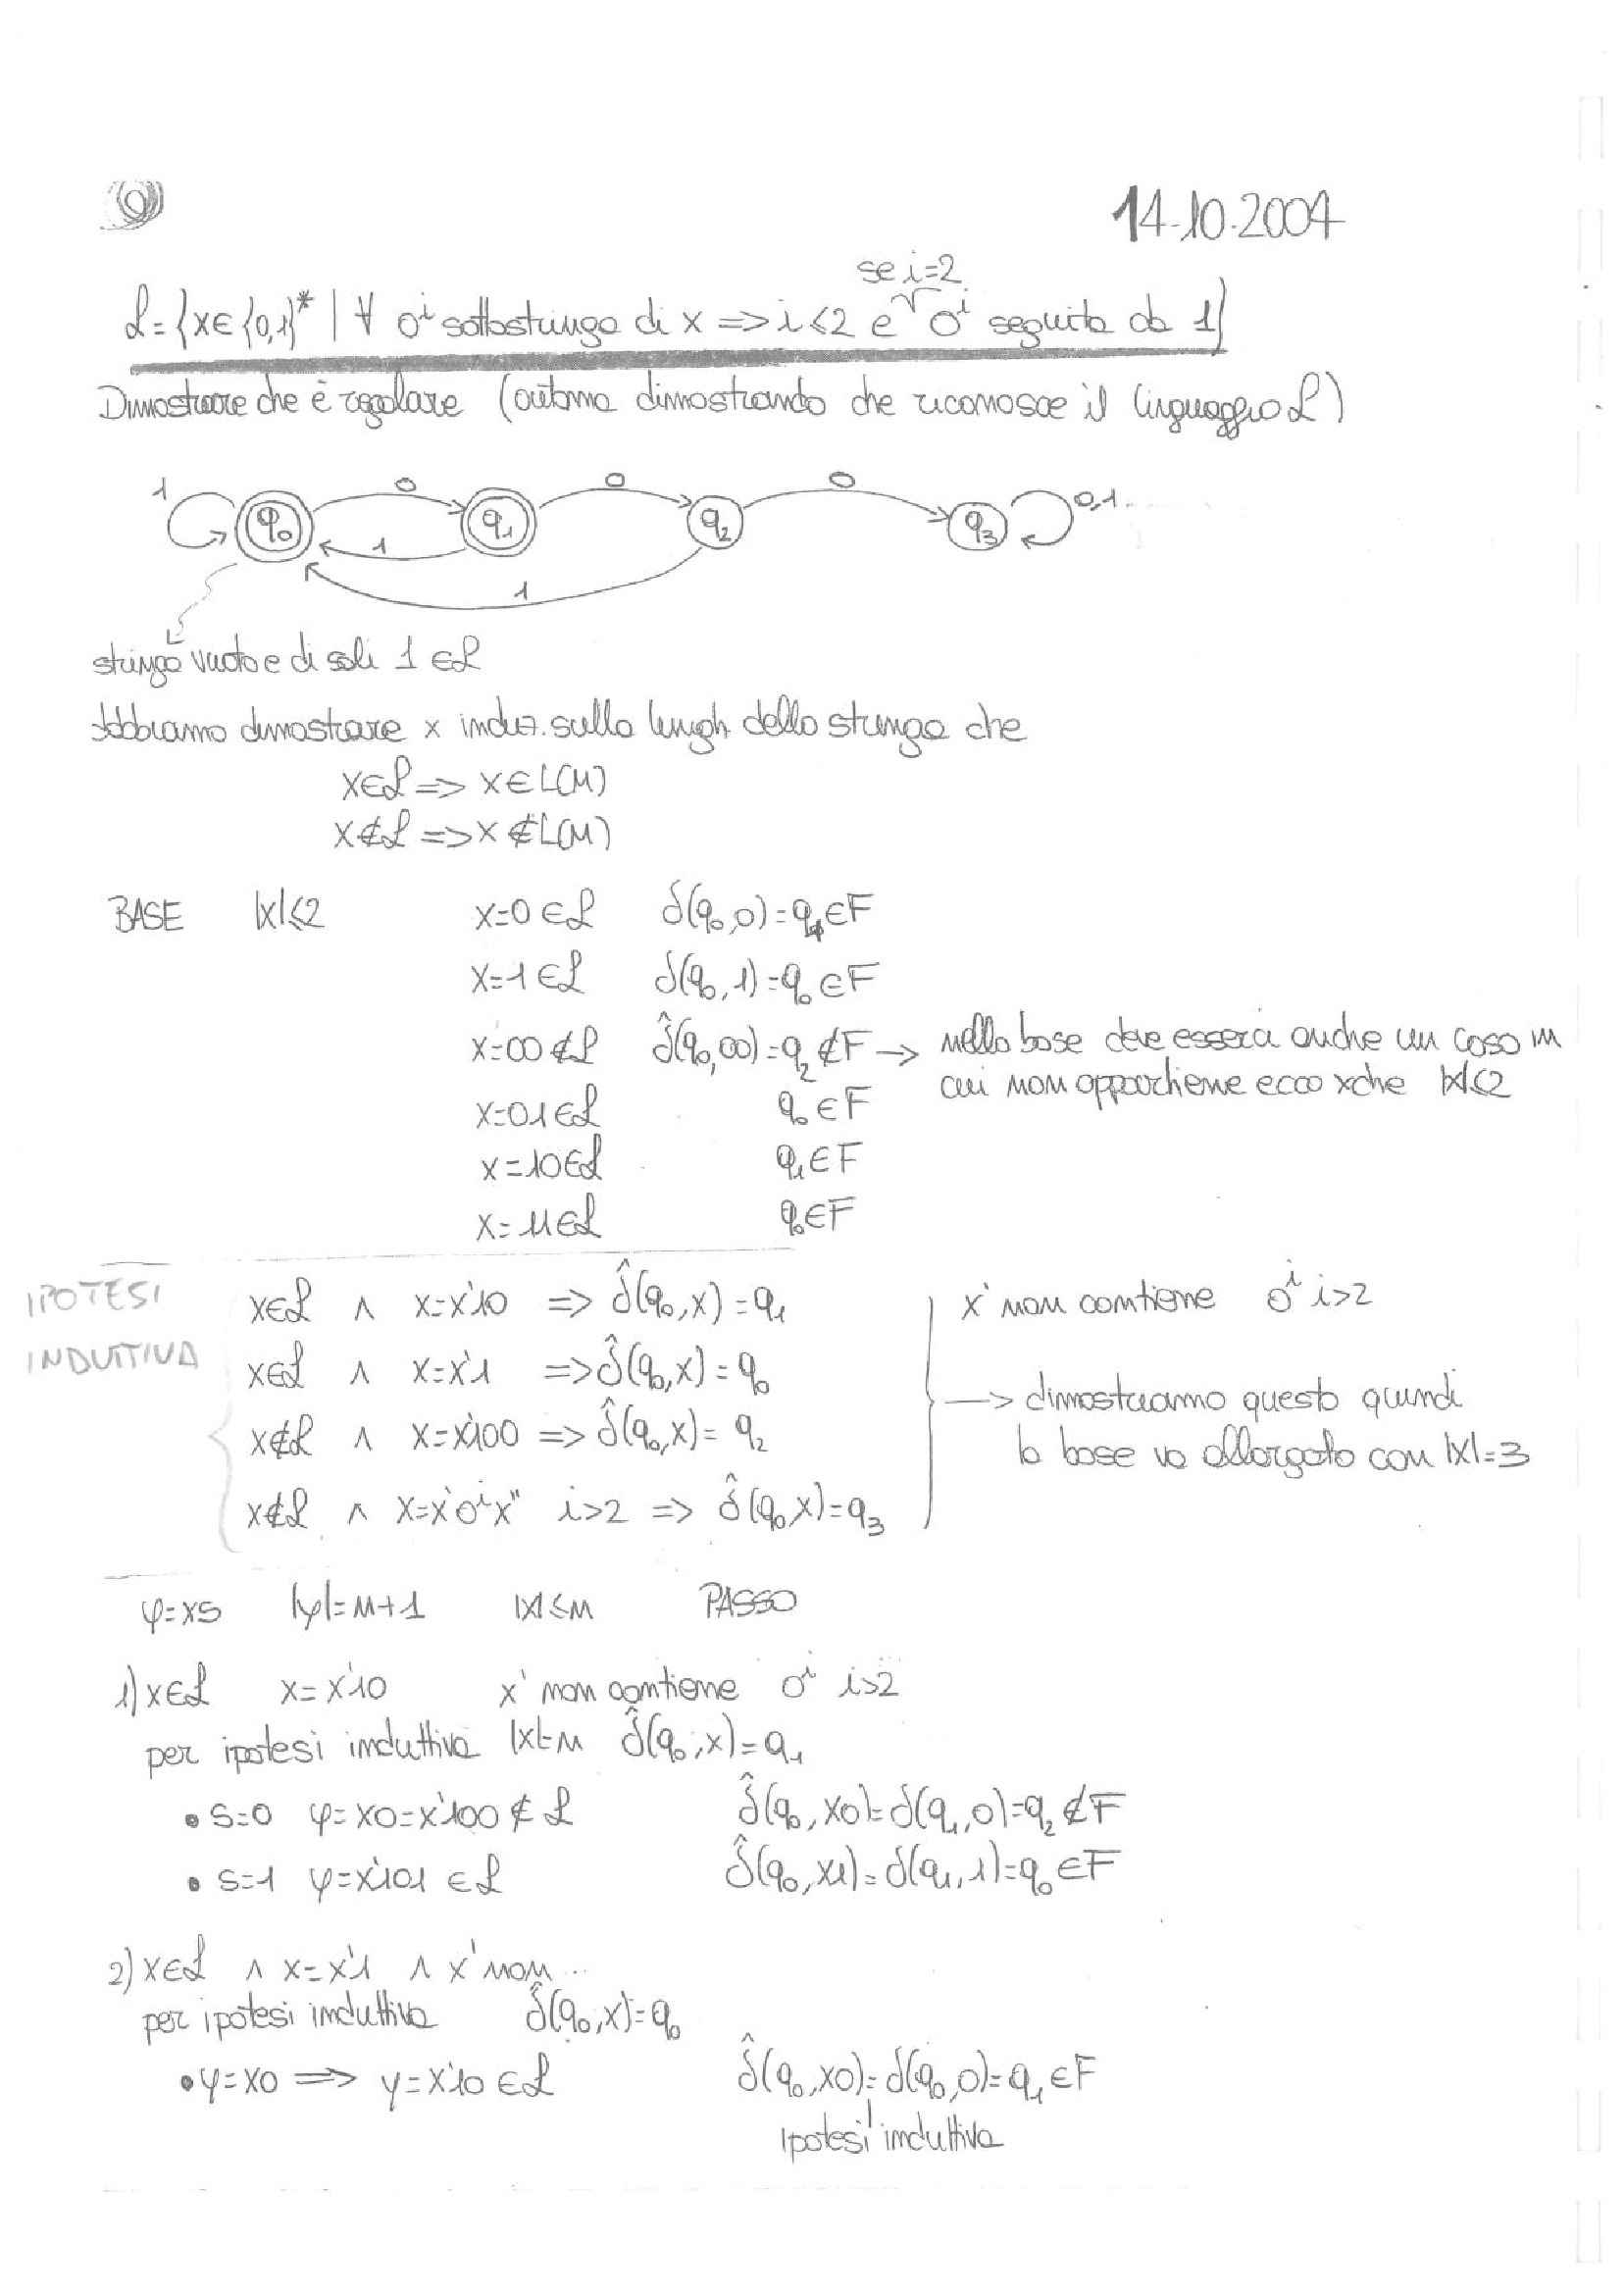 14-10-2004
se i=2
L={x∈{0,1}* | ∀ 0^i sottostringa di x => i≤2 e 0^i seguita da 1}
Dimostrare che è regolare (automa dimostrando che riconosce il linguaggio L)
1 0 0 0 0,1
q0 q1 q2 q3
1
1
stringa vuota e di soli 1 ∈L
dobbiamo dimostrare x induz. sulla lungh. della stringa che
x∈L => x∈L(M)
x∉L => x∉L(M)
BASE |x|≤2 x=0∈L δ(q0,0)=q1∈F
x=1∈L δ(q0,1)=q0∈F
x=00∉L δ̂(q0,00)=q2∉F → nella base deve esserci anche un caso in
cui non appartiene ecco xche |x|≤2
x=01∈L q0∈F
x=10∈L q1∈F
x=11∈L q0∈F
IPOTESI
INDUTTIVA
x∈L ∧ x=x'10 => δ̂(q0,x)=q1 x' non contiene 0^i i>2
x∈L ∧ x=x'1 => δ̂(q0,x)=q0
x∉L ∧ x=x'100 => δ̂(q0,x)=q2 → dimostriamo questo quindi
la base va allargata con |x|=3
x∉L ∧ x=x'0^i x" i>2 => δ̂(q0,x)=q3
y=xs |y|=n+1 |x|≤n PASSO
1) x∈L x=x'10 x' non contiene 0^i i>2
per ipotesi induttiva |x|=n δ̂(q0,x)=q1
• s=0 y=x0=x'100∉L δ̂(q0,x0)=δ(q1,0)=q2∉F
• s=1 y=x'101∈L δ̂(q0,x1)=δ(q1,1)=q0∈F
2) x∈L ∧ x=x'1 ∧ x' non...
per ipotesi induttiva δ̂(q0,x)=q0
• y=x0 => y=x'10∈L δ̂(q0,x0)=δ(q0,0)=q1∈F
Ipotesi induttiva